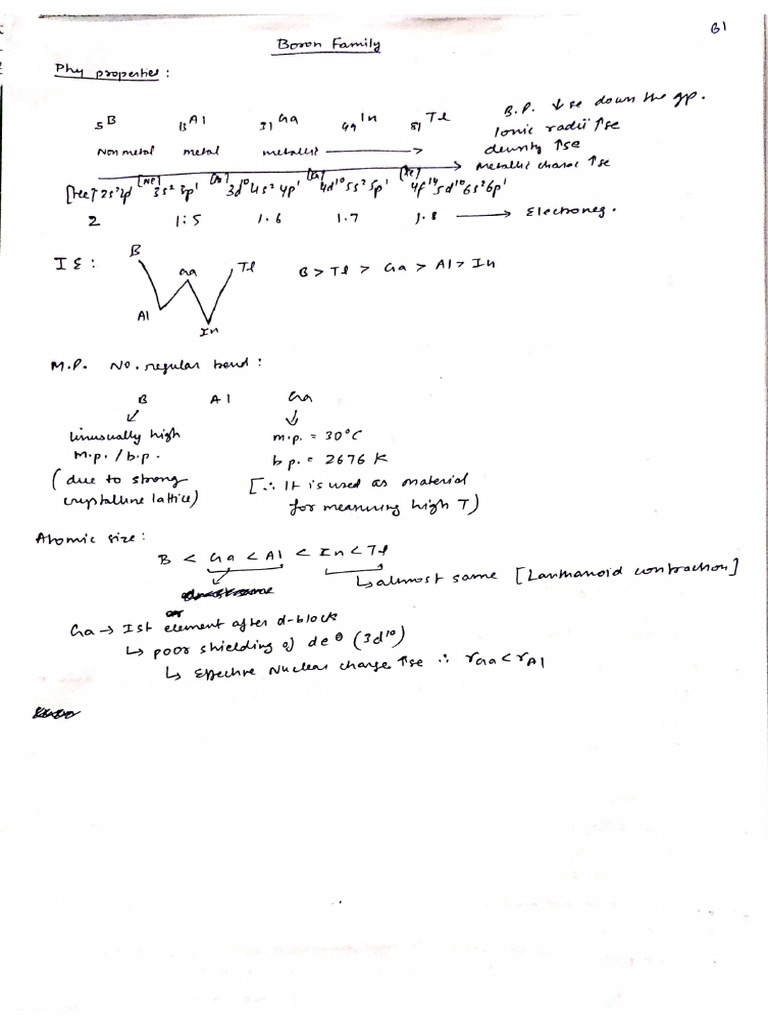 61
Boron Family
Phy properties :
5B 13Al 31Ga 49In 81Tl
B.P. ↓se down the gp.
Ionic radii ↑se
density ↑se
Metallic charac ↑se
Non metal metal metallic ⟶
[He] 2s²2p¹ [Ne] 3s² 3p¹ [Ar] 3d¹⁰ 4s² 4p¹ [Kr] 4d¹⁰ 5s² 5p¹ [Xe] 4f¹⁴ 5d¹⁰ 6s² 6p¹
2 1.5 1.6 1.7 1.8 ⟶ Electroneg.
IE : B Al Ga In Tl B > Tl > Ga > Al > In
M.P. No. regular trend :
B Al Ga
Unusually high
m.p. / b.p.
(due to strong
crystalline lattice)
m.p. = 30°C
b p. = 2676 K
[∴ It is used as material
for measuring high T)
Atomic size :
B < Ga < Al < In < Tl
↳ almost same [Lanthanoid contraction]
Ga → Ist element after d-block
↳ poor shielding of d e⊖ (3d¹⁰)
↳ Effective Nuclear charge ↑se ∴ rGa < rAl